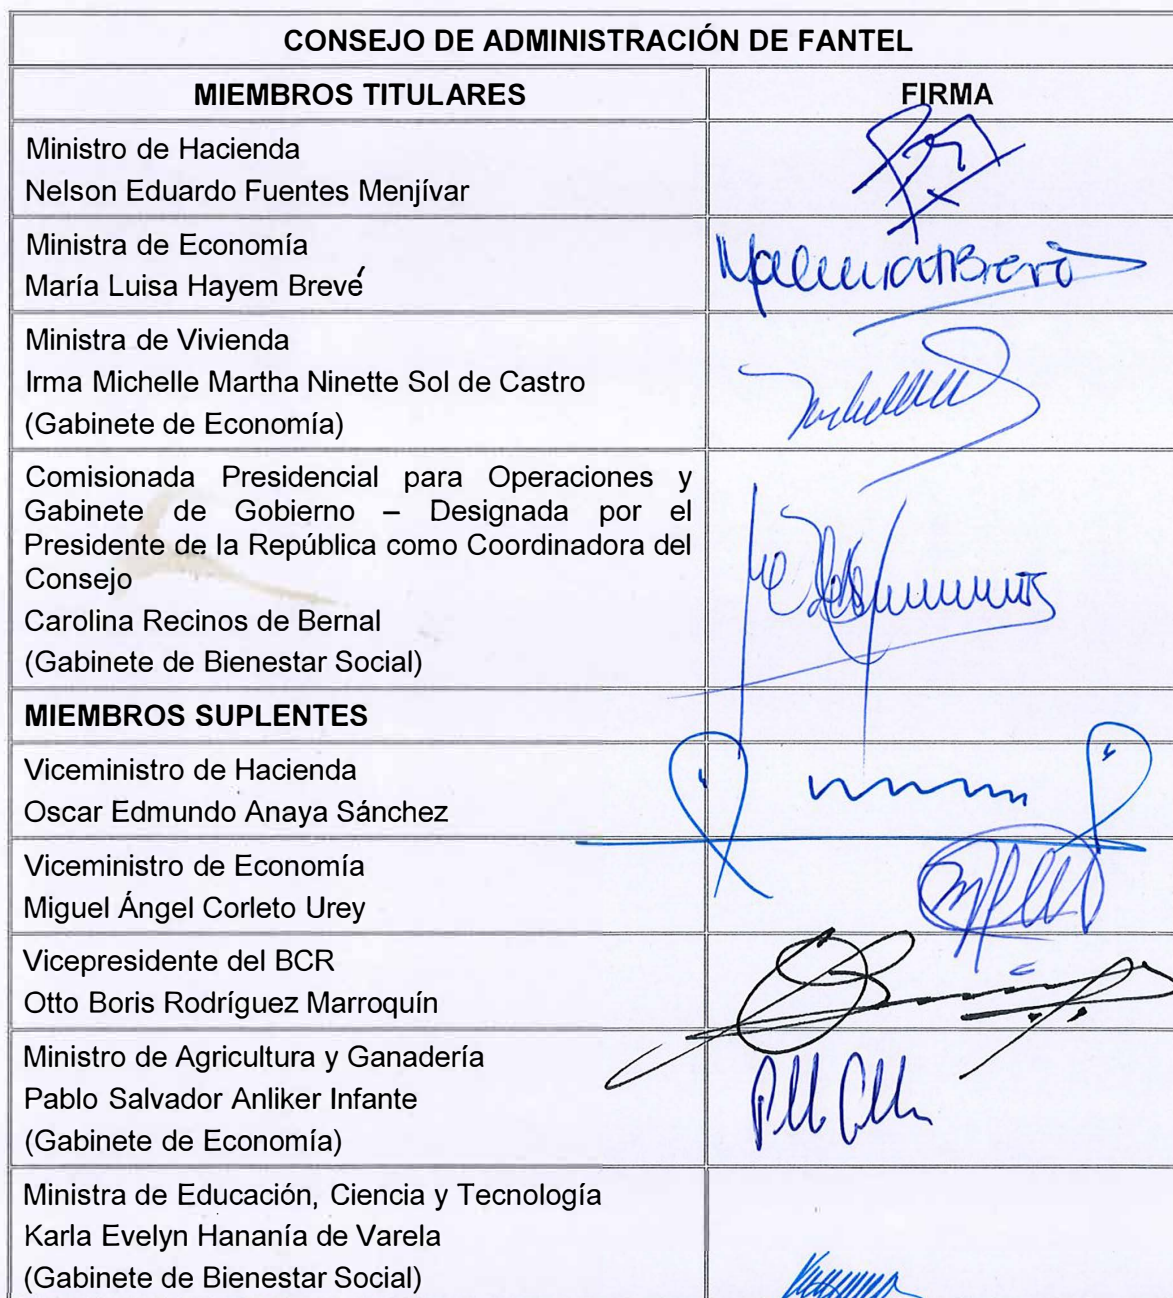 CONSEJO DE ADMINISTRACIÓN DE FANTEL
MIEMBROS TITULARES FIRMA
Ministro de Hacienda
Nelson Eduardo Fuentes Menjívar
Ministra de Economía
María Luisa Hayem Brevé
Ministra de Vivienda
Irma Michelle Martha Ninette Sol de Castro
(Gabinete de Economía)
Comisionada Presidencial para Operaciones y
Gabinete de Gobierno – Designada por el
Presidente de la República como Coordinadora del
Consejo
Carolina Recinos de Bernal
(Gabinete de Bienestar Social)
MIEMBROS SUPLENTES
Viceministro de Hacienda
Oscar Edmundo Anaya Sánchez
Viceministro de Economía
Miguel Ángel Corleto Urey
Vicepresidente del BCR
Otto Boris Rodríguez Marroquín
Ministro de Agricultura y Ganadería
Pablo Salvador Anliker Infante
(Gabinete de Economía)
Ministra de Educación, Ciencia y Tecnología
Karla Evelyn Hananía de Varela
(Gabinete de Bienestar Social)